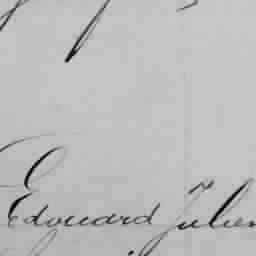 Edouard Julien